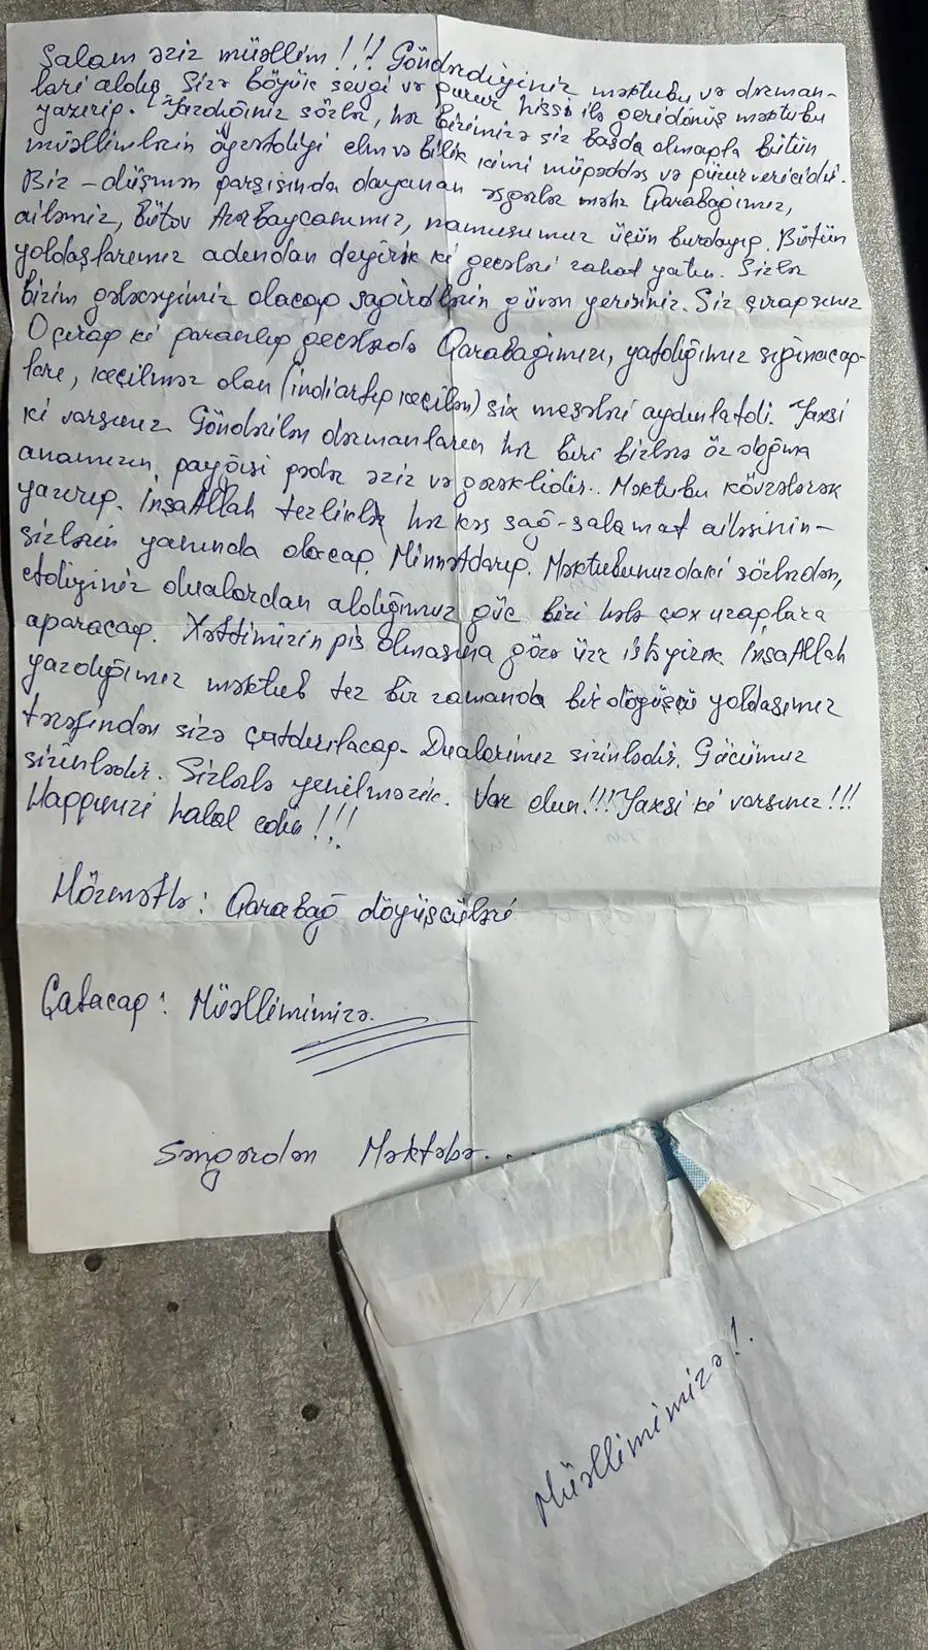 Salam əziz müəllim!!! Göndərdiyiniz məktubu və dərman-
ları aldıq. Sizə böyük sevgi və qürur hissi ilə geridönüş məktubu
yazırıq. Yazdığınız sözlər, hər birimizə siz başda olmaqla bütün
müəllimlərin öyrətdiyi elm və bilik kimi müqəddəs və qürurvericidir.
Biz - düşmən qarşısında dayanan əsgərlər məhz Qarabağımız,
ailəmiz, Bütöv Azərbaycanımız, namusumuz üçün burdayıq. Bütün
yoldaşlarımız adından deyirik ki gecələri rahat yatın. Sizlər
bizim gələcəyimiz olacaq şagirdlərin güvən yerisiniz. Siz çıraqsınız
O çıraq ki qaranlıq gecələrdə Qarabağımızı, yatdığımız sığınacaq-
ları, keçilməz olan (indi artıq keçilən) six meşələri aydınlatdı. Yaxşi
ki varsınız. Göndərilən dərmanların hər biri bizlərə öz doğma
anamızın, payğısı qədər əziz və gərəklidir.. Məktubu kövrələrək
yazırıq. İnşaAllah tezliklə hər kəs sağ-salamat ailəsinin-
sizlərin yanında olacaq. Minnətdarıq. Məktubunuzdaki sözlərdən,
etdiyiniz dualardan aldığımız güc bizi hələ çox uzaqlara
aparacaq. Xəttimizin pis olmasına görə üzr istəyirik. İnşaAllah
yazdığımız məktub tez bir zamanda bir döyüşçü yoldaşımız
tərəfindən sizə çatdırılacaq. Dualarımız sizinlədir. Gücümüz
sizinlədir. Sizlərlə yenilməzik. Var olun!!! Yaxşi ki varsınız!!!
Haqqınızı halal edin!!!
Hörmətlə: Qarabağ döyüşçüləri
Çatacaq: Müəllimimizə.
Səngərdən Məktəbə...
Müəllimimizə!